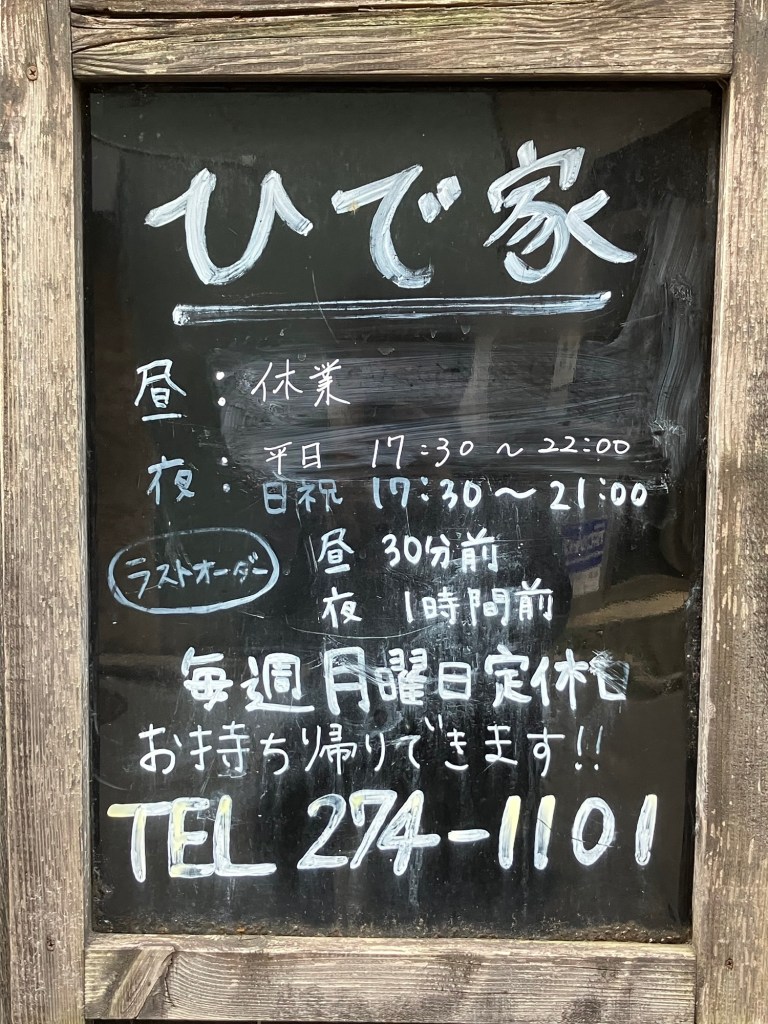 ひで家
昼：休業
夜：平日 17:30～22:00
日祝 17:30～21:00
ラストオーダー 昼 30分前
夜 1時間前
毎週月曜日定休日
お持ち帰りできます!!
TEL 274-1101